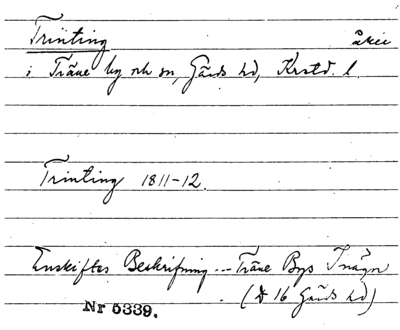 Trinting åker
i Träne by och sn, Gärds hd, Krstd. l.
Trinting 1811-12.
Enskiftes Beskrifning --- Träne Bys Inägor
(D 16 Gärds hd)
Nr 5339.